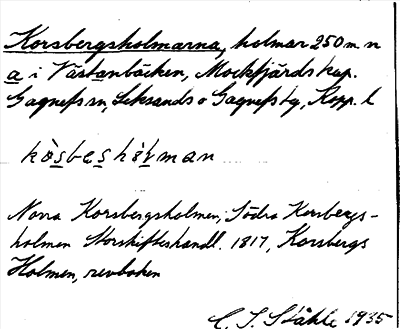 Korsbergsholmarna, holmar 250 m n
a i Västanbäcken, Mockfjärds kap.
Gagnefs sn, Leksands o Gagnefs tg, Kopp. l
kòsbeshòlman
Norra Korsbergsholmen, Södra Korsbergs-
holmen Storskifteshandl. 1817, Korsbergs
Holmen, revboken
C. I. Ståhle 1935